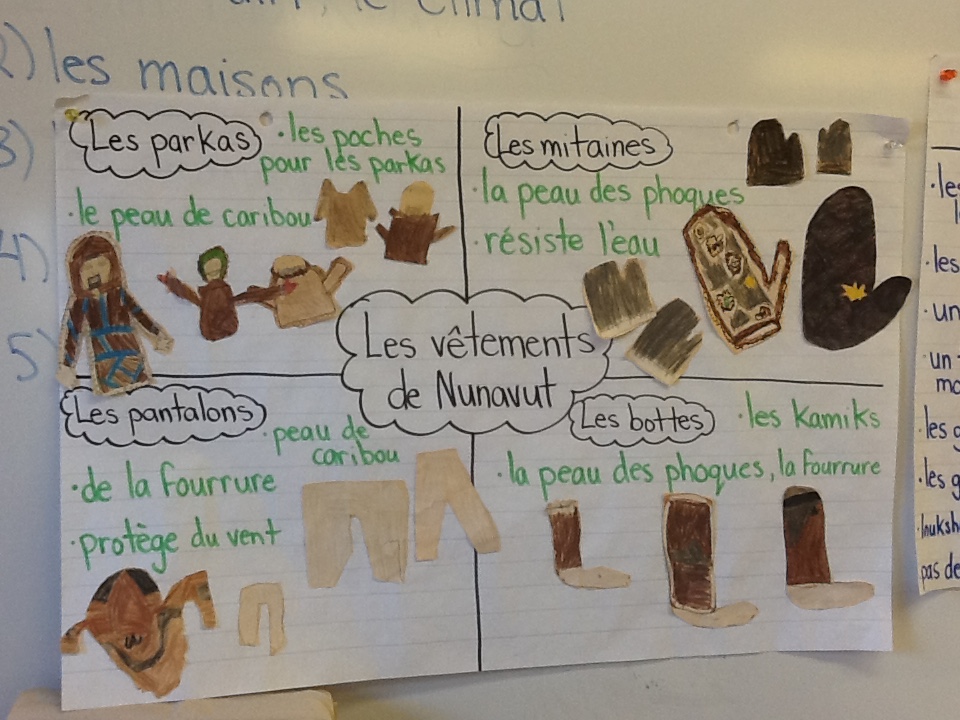 2) les maisons
3)
4)
5)
Les parkas
· les poches
pour les parkas
· le peau de caribou
Les mitaines
· la peau des phoques
· résiste l'eau
Les vêtements
de Nunavut
Les pantalons
· peau de
caribou
· de la fourrure
· protège du vent
Les bottes
· les Kamiks
· la peau des phoques, la fourrure
· les
· un
· un
· les
· les
pas de